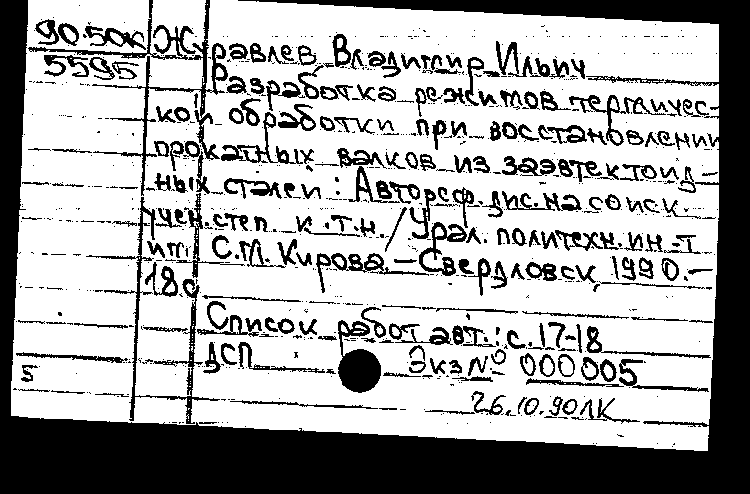 90.50к Журавлев Владимир Ильич
5595 Разработка режимов термичес-
кой обработки при восстановлении
прокатных валков из заэвтектоид-
ных сталей : Автореф. дис. на соиск.
учен. степ. к.т.н. / Урал. политехн. ин-т
им. С.М. Кирова. - Свердловск, 1990. -
18с
Список работ авт.: с. 17-18
ДСП Экз № 000005
5
26.10.90 ЛК